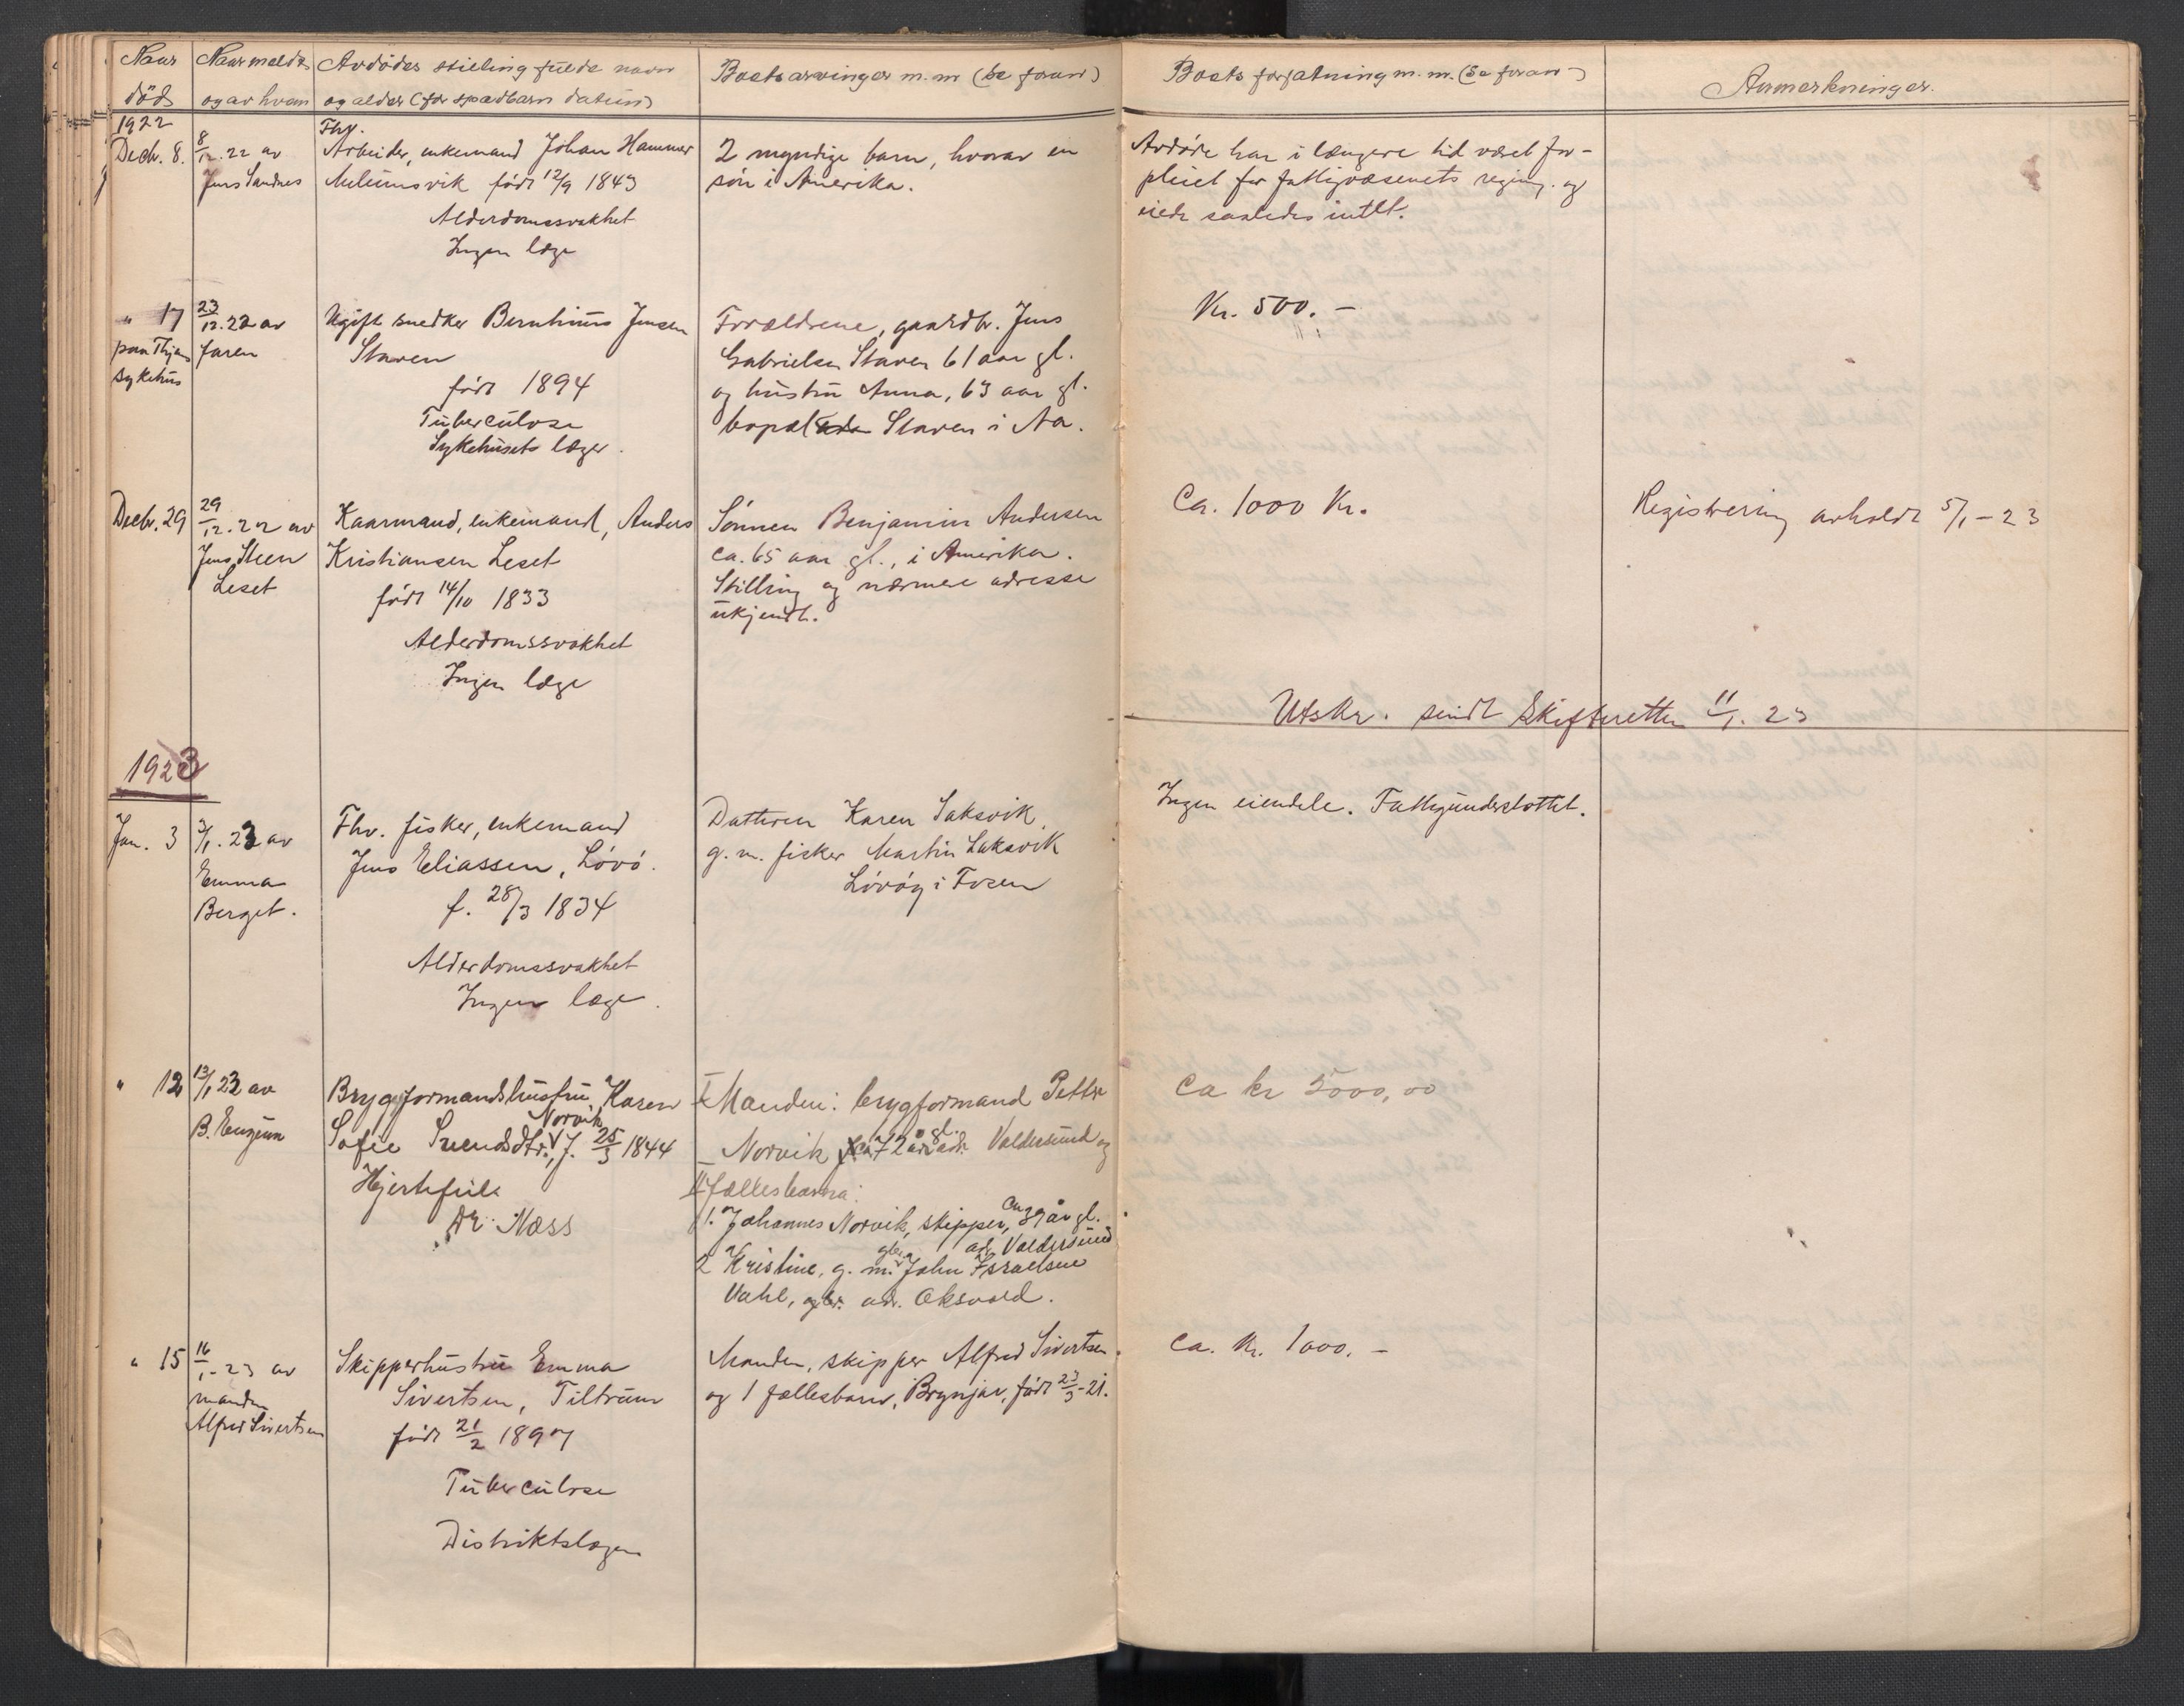 Naar død
Naar meldt og av hvem
Avdødes stilling fulde navn og alder (for spædbarn datum)
Boets arvinger m. m (se foran)
Boets forfatning m. m. (se foran)
Anmerkninger.
1922
Decb. 8.
8/12. 22 av
Jens Sandnes
Fhv.
Arbeider, enkemand Johan Hammer
født 12/9 1843
Alderdomssvakhet
Ingen læge
2 myndige barn, hvorav en
søn i Amerika.
Avdøde har i længere tid været for-
pleiet for fattigvæsenets regning og
eiede saaledes intet.
" 17
paa Thjems
sykehus
23/12. 22 av
faren
Ugift snedker Bernhinus Jensen
Staven
født 1894
Tuberculose
Sykehusets læger.
Forældrene, gaardbr. Jens
Gabrielsen Staven 61 aar gl.
og hustru Anna, 63 aar gl.
bopæl Staven i Aa.
Kr. 500. -
Decbr. 29
29/12. 22 av
Jens Steen
Leset
Kaarmand, enkemand, Anders
Kristiansen Leset
født 14/10 1833
Alderdomssvakhet
Ingen læge
Sønnen Benjamin Andersen
ca. 65 aar gl., i Amerika.
Stilling og nærmere adresse
ukjendt.
Ca. 1000 Kr.
Registrering avholdt 5/1 - 23
Utskr. sendt Skifteretten 11/1. 23
1923
Jan. 3
3/1. 23 av
Emma
Berget.
Fhv. fisker, enkemand
Jens Eliassen, Løvø.
f. 28/3 1834
Alderdomssvakhet
Ingen læge.
Datteren Karen Laksvik,
g. m. fisker Martin Laksvik
Løvøy i Fosen
Ingen eiendele. Fattigunderstøttet.
" 12
13/1 23 av
B. Eugium
Bryggformandshustru, Karen
Sofie Svendsdtr. Norvik, f. 25/3 1844
Hjertefeil
Dr. Næss
I Manden: brygformand Petter
Norvik ca 72 år gl. adr. Valdersund og
II fællesbarna:
1. Johannes Norvik, skipper, ca 39 år gl.
adr. Valdersund
2 Kristine, g. m. gbr. John Israelsen
Vahl, gbr. adr. Oksvold.
Ca kr 5000,00
" 15
16/1 - 23 av
manden
Alfred Sivertsen
Skipperhustru Emma
Sivertsen, Tiltrum
født 21/2 1897
Tuberculose
Distriktslægen
Manden, skipper Alfred Sivertsen.
og 1 fællesbarn, Brynjar, født 23/3 - 21.
Ca. Kr. 1000. -